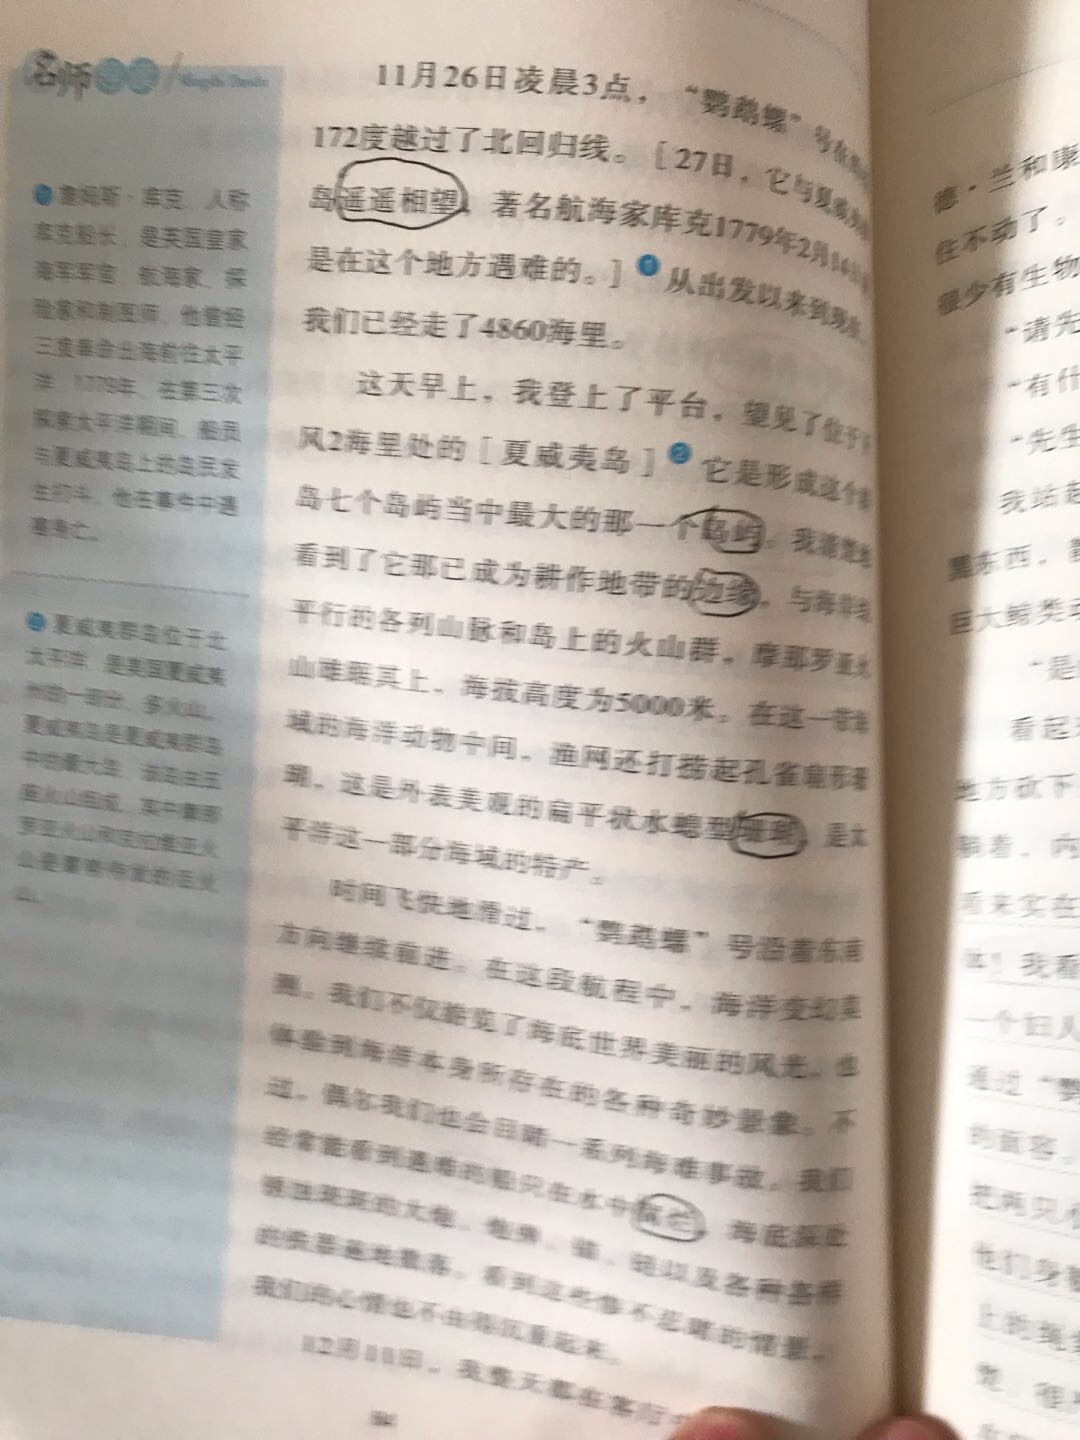 名师
11月26日凌晨3点，“鹦鹉螺”号在
172度越过了北回归线。[27日，它与夏威夷
岛遥遥相望，著名航海家库克1779年2月14日
是在这个地方遇难的。]1从出发以来到现在，
我们已经走了4860海里。
这天早上，我登上了平台，望见了位于下
风2海里处的[夏威夷岛]2它是形成这个
岛七个岛屿当中最大的那一个岛屿。我清楚地
看到了它那已成为耕作地带的边缘，与海岸线
平行的各列山脉和岛上的火山群，摩那罗亚火
山雄踞其上，海拔高度为5000米。在这一带海
域的海洋动物中间，渔网还打捞起孔雀扇形珊
瑚，这是外表美观的扁平状水螅型珊瑚，是太
平洋这一部分海域的特产。
时间飞快地滑过，“鹦鹉螺”号沿着东南
方向继续前进。在这段航程中，海洋变幻莫
测。我们不仅游览了海底世界美丽的风光，也
体验到海洋本身所存在的各种奇妙景象。不
过，偶尔我们也会目睹一系列海难事故。我们
经常能看到遇难的船只在水中，海底深处
锈蚀斑斑的大炮、炮弹、锚、链以及各种各样
的铁器遍地散落。看到这些惨不忍睹的情景，
我们的心情也不由得沉重起来。
12月11日，我整天都在客厅
1 詹姆斯·库克，人称
库克船长，是英国皇家
海军军官、航海家、探
险家和制图师，他曾经
三度奉命出海前往太平
洋。1779年，在第三次
探索太平洋期间，船员
与夏威夷岛上的岛民发
生打斗，他在事件中遇
害身亡。
2 夏威夷群岛位于北
太平洋，是美国夏威夷
州的一部分，多火山。
夏威夷岛是夏威夷群岛
中的最大岛，该岛由五
座火山组成，其中摩那
罗亚火山和基拉韦亚火
山是
山。
德·兰和康
住不动了。
很少有生物
“请先
“有什
“先生
我站起
黑东西，
巨大鲸类
“是
看起来
地方砍下
躺着，内
看来实在
体！我看
一个妇人
通过“鹦
的面容，
把两只
他们身
上的绳
楚，很